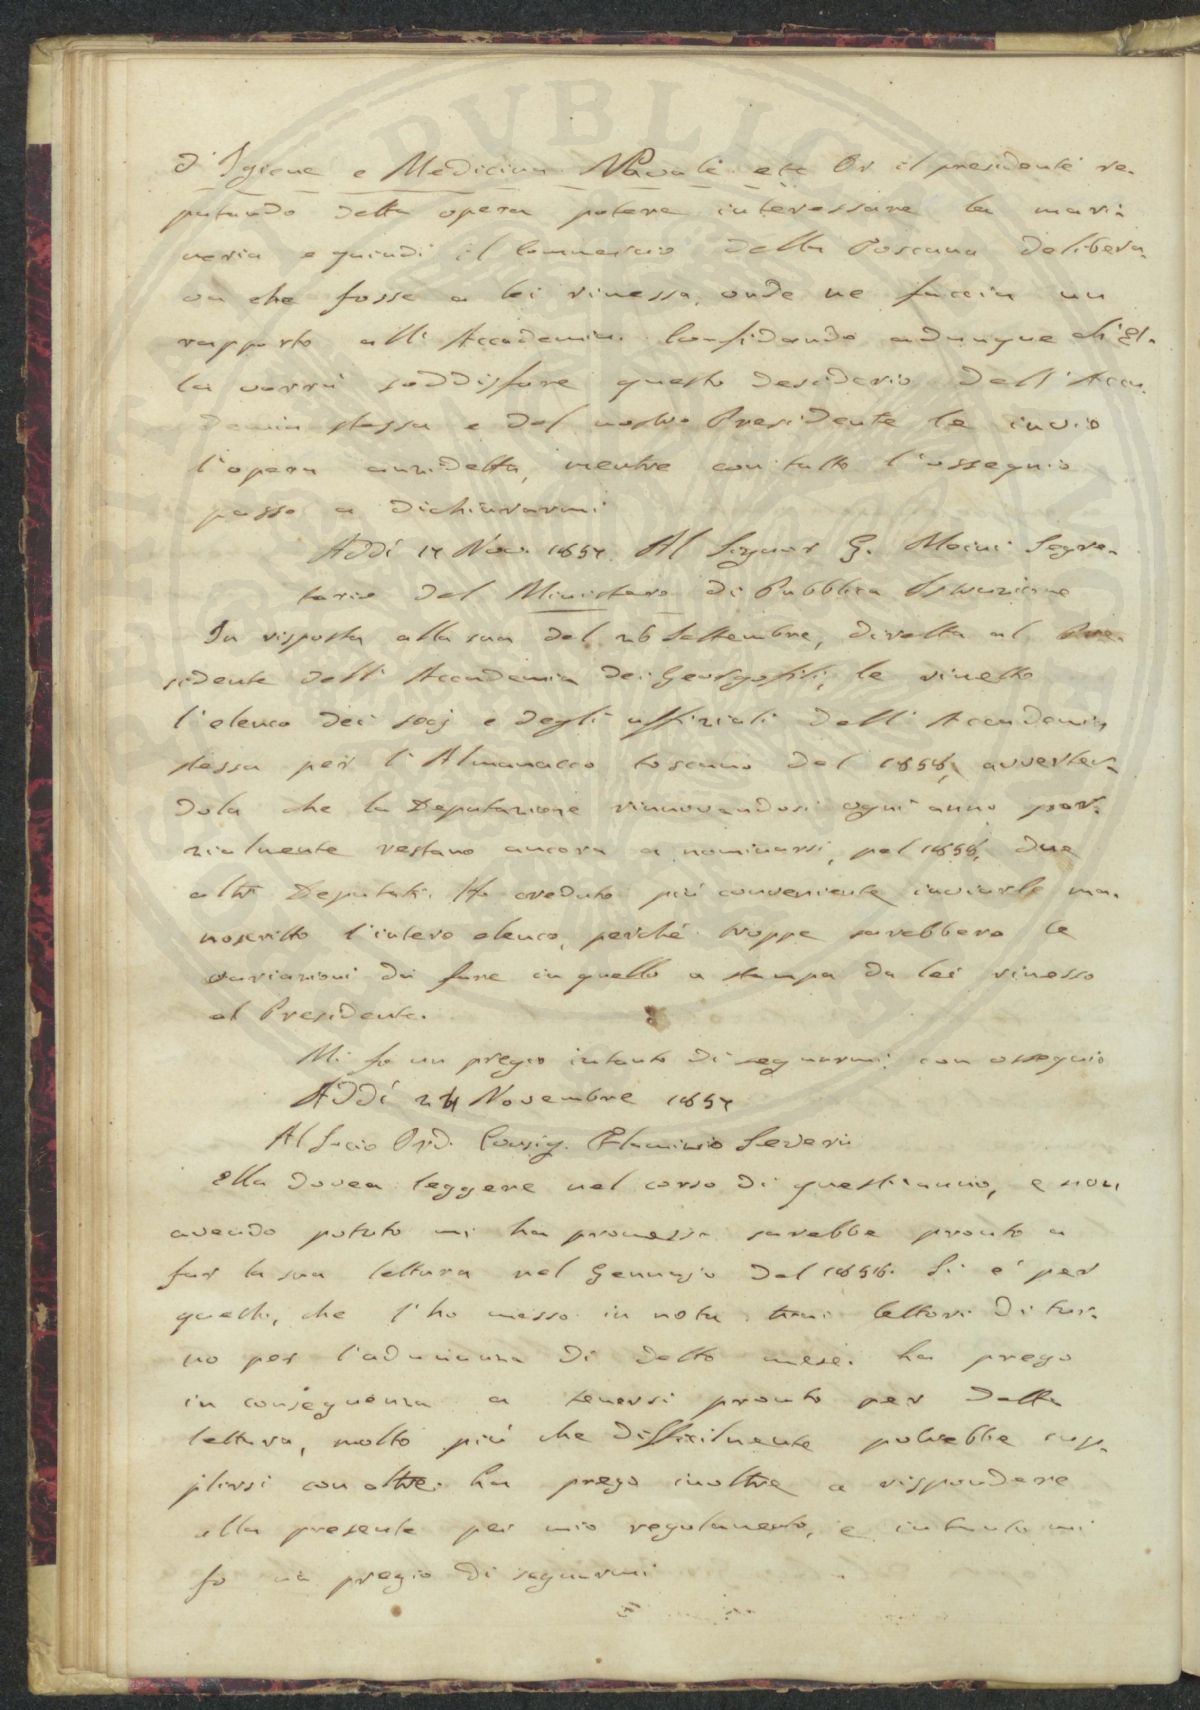 d'Igiene e Medicina Navale etc Or il presidente re-
putando detta opera potere interessare la mari-
neria e quindi il Commercio della Toscana delibera-
va che fosse a lei rimessa, onde ne faccia un
rapporto all'Accademia. Confidando adunque ch'El-
la vorrà soddisfare questo desiderio dell'Acca-
demia stessa e del nostro Presidente le invio
l'opera anzidetta, mentre con tutto l'ossequio
passo a dichiararmi
Addì 17 Nov. 1857. Al Signor G. Meini Segre-
tario del Ministero di Pubblica Istruzione
In risposta alla sua del 26 Settembre, diretta al Pre-
sidente dell'Accademia dei Georgofili, le rimetto
l'elenco dei socj e degli uffiziali dell'Accademia
stessa per l'Almanacco toscano del 1858, avverten-
dola che la Deputazione rinnovandosi ogni anno par-
zialmente restano ancora a nominarsi, pel 1858, due
altri Deputati. Ho creduto più conveniente inviarle ma-
noscritto l'intero elenco, perché troppe sarebbero le
variazioni da fare in quello a stampa da lei rimesso
al Presidente.
Mi fo un pregio intanto di segnarmi con ossequio
Addì 24 Novembre 1857
Al Socio Ord. Consig. Flaminio Severi
Ella dovea leggere nel corso di quest'anno, e non
avendo potuto mi ha promesso sarebbe pronto a
far la sua lettura nel Gennajo del 1858. Si è per
questo, che l'ho messo in nota tra i lettori di tur-
no per l'adunanza di detto mese. La prego
in conseguenza a tenersi pronto per detta
lettura, molto più che difficilmente potrebbe sup-
plirsi con altre. La prego inoltre a rispondere
alla presente per mio regolamento, e intanto mi
fo un pregio di segnarmi